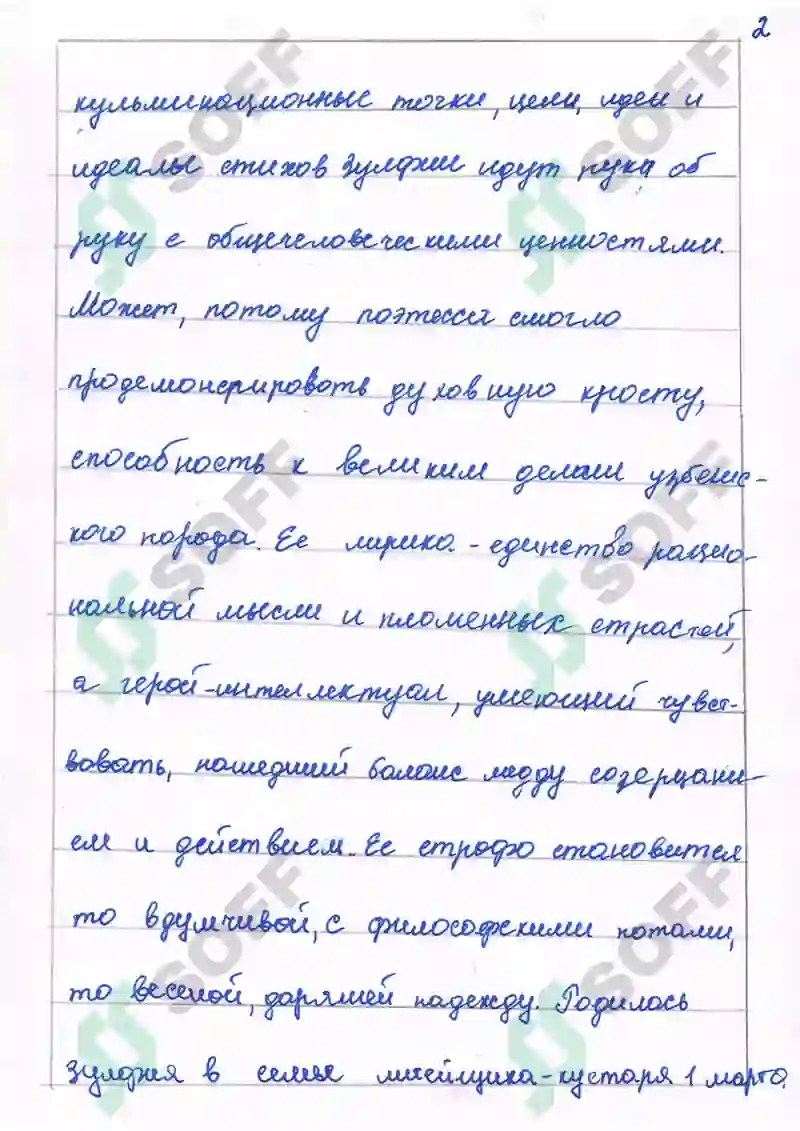 2
кульминационные точки, цели, идеи и
идеалы стихов Зулфии идут рука об
руку с общечеловеческими ценностями.
Может, потому поэтесса смогла
продемонсрировать духовную кросту,
способность к великим делам узбекс-
кого народа. Ее лирика - единство рацио-
нальной мысли и пламенных страстей,
а герой-интеллектуал, умеющий чувст-
вовать, нашедший баланс между созерцани-
ем и действием. Ее строфа становится
то вдумчивой, с философскими нотами,
то веселой, дарящей надежду. Родилась
Зулфия в семье литейщика-кустаря 1 марта
SOFF
SOFF
SOFF
SOFF
SOFF
SOFF